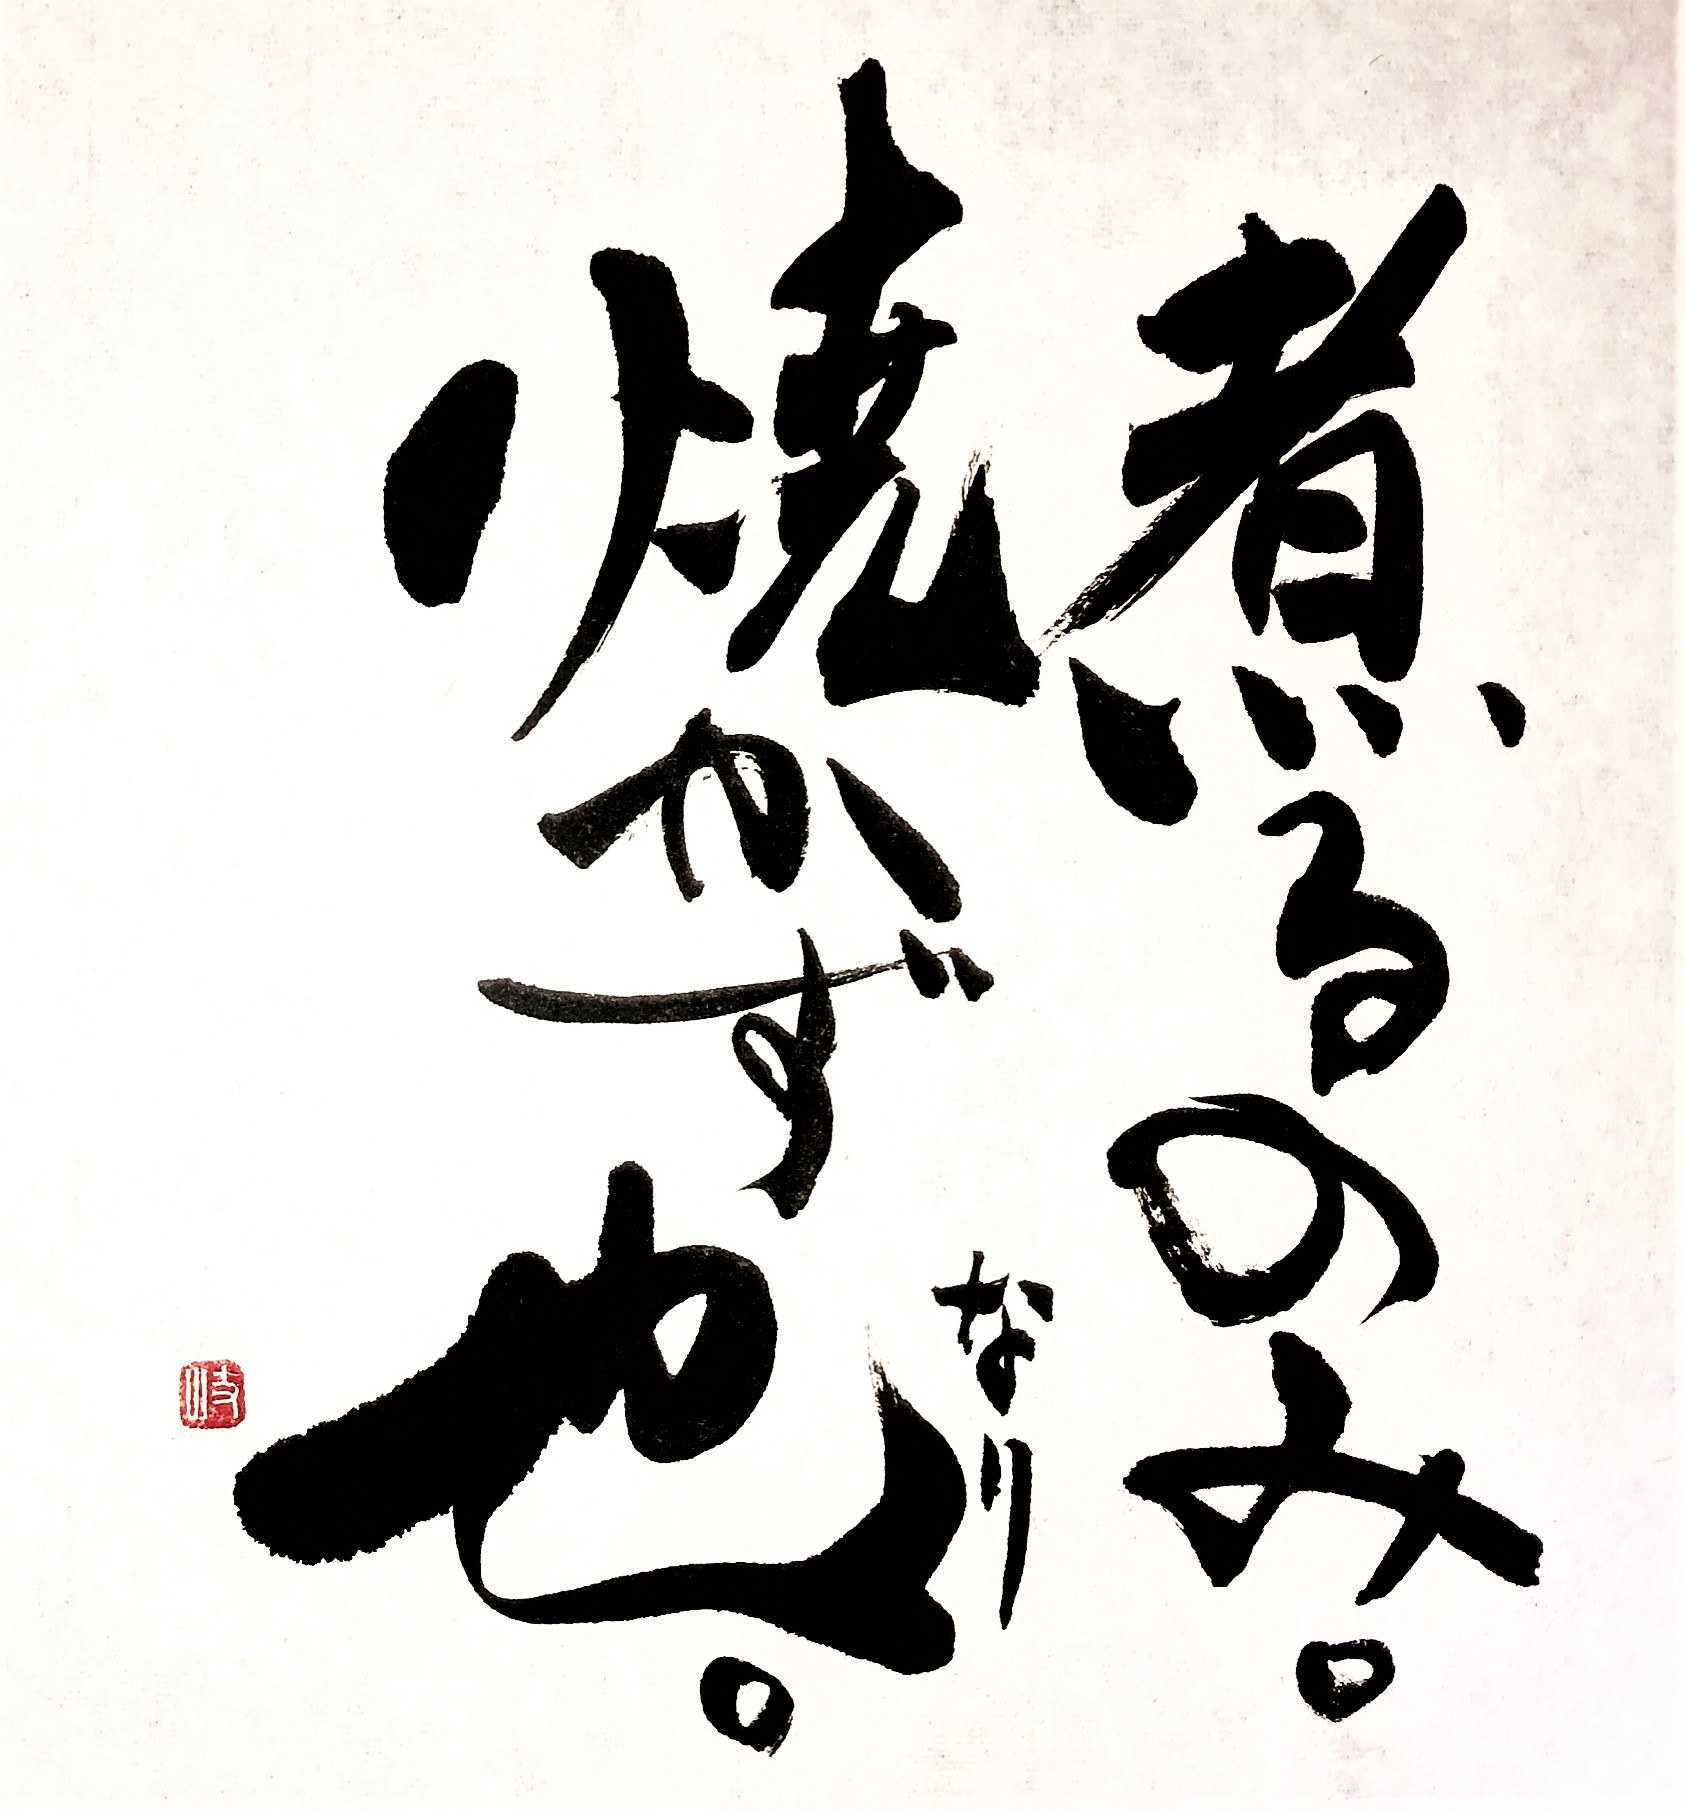 煮るのみ。
焼かず也。
なり
岐